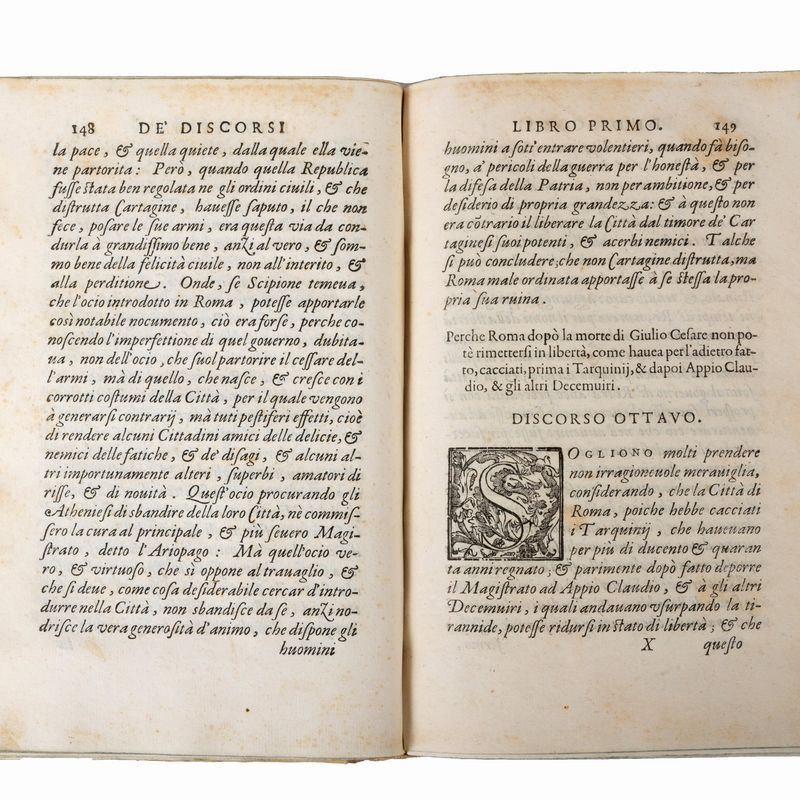 148 DE' DISCORSI
la pace, & quella quiete, dalla quale ella vie-
ne partorita: Però, quando quella Republica
fuſſe ſtata ben regolata ne gli ordini ciuili, & che
diſtrutta Cartagine, haueſſe ſaputo, il che non
fece, poſare le ſue armi, era queſta via da con-
durla à grandiſſimo bene, anzi al vero, & ſom-
mo bene della felicità ciuile, non all'interito, &
alla perditione. Onde, ſe Scipione temeua,
che l'ocio introdotto in Roma, poteſſe apportarle
così notabile nocumento, ciò era forſe, perche co-
noſcendo l'imperfettione di quel gouerno, dubita-
ua, non dell'ocio, che ſuol partorire il ceſſare del-
l'armi, mà di quello, che naſce, & creſce con i
corrotti coſtumi della Città, per il quale vengono
à generarſi contrarij, mà tuti peſtiferi effetti, cioè
di rendere alcuni Cittadini amici delle delicie, &
nemici delle fatiche, & de' diſagi, & alcuni al-
tri importunamente alteri, ſuperbi, amatori di
riſſe, & di nouità. Queſt'ocio procurando gli
Athenieſi di sbandire della loro Città, nè commiſ-
ſero la cura al principale, & più ſeuero Magi-
ſtrato, detto l'Ariopago: Mà quell'ocio ve-
ro, & virtuoſo, che sì oppone al trauaglio, &
che ſi deue, come coſa deſiderabile cercar d'intro-
durre nella Città, non sbandiſce da ſe, anzi no-
driſce la vera generoſità d'animo, che diſpone gli
huomini
LIBRO PRIMO. 149
huomini a ſoti'entrare volentieri, quando fà biſo-
gno, a' pericoli della guerra per l'honeſtà, & per
la difeſa della Patria, non per ambitione, & per
deſiderio di propria grandezza: & à queſto non
era cōtrario il liberare la Città dal timore de' Car
taginesi ſuoi potenti, & acerbi nemici. Talche
ſi può concludere; che non Cartagine diſtrutta, ma
Roma male ordinata apportaſſe à ſe ſteſſa la pro-
pria ſua ruina.
Perche Roma dopò la morte di Giulio Ceſare non po-
tè rimetterſi in libertà, come hauea per l'adietro fat-
to, cacciati, prima i Tarquinij, & dapoi Appio Clau-
dio, & gli altri Decemuiri.
DISCORSO OTTAVO.
SOGLIONO molti prendere
non irragioneuole merauiglia,
conſiderando, che la Città di
Roma, poiche hebbe cacciati
i Tarquinij, che haueuano
per più di ducento & quaran
ta anni regnato; & parimente dopò fatto deporre
il Magiſtrato ad Appio Claudio, & à gli altri
Decemuiri, i quali andauano vſurpando la ti-
rannide, poteſſe ridurſi in ſtato di libertà; & che
X queſto